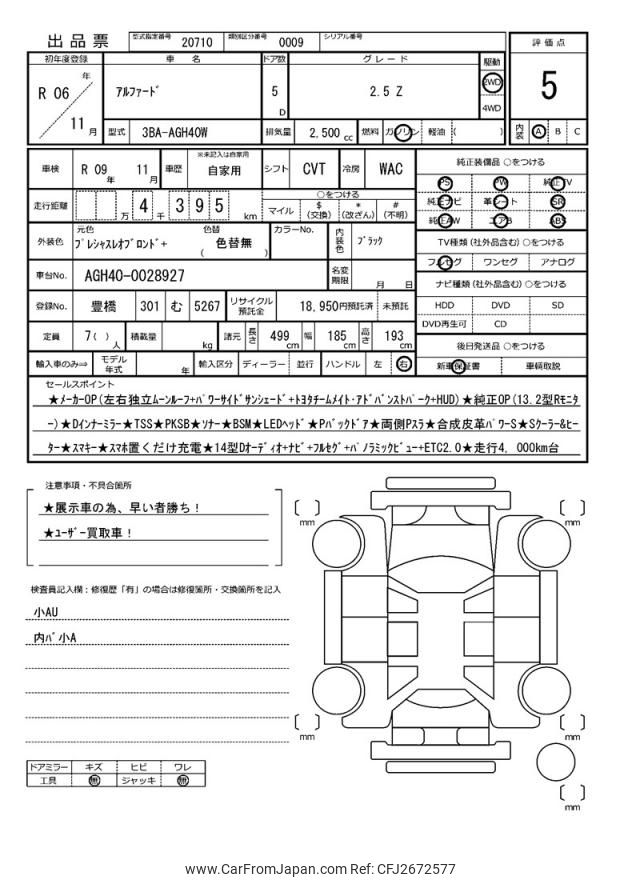 出品票 型式指定番号 20710 類別区分番号 0009 シリアル番号
評価点
5
内装 A B C
初年度登録 車名 ドア数 グレード 駆動
R 06 年 11 月 アルファード 5 D 2.5 Z 2WD 4WD
型式 3BA-AGH40W 排気量 2,500 cc 燃料 ガソリン 軽油 ( )
車検 R 09 年 11 月 車歴 ※未記入は自家用 自家用 シフト CVT 冷房 WAC
走行距離 万 4 千 3 9 5 km
○をつける
マイル $ (交換) * (改ざん) # (不明)
外装色 元色 プレシャスレオブロンド+ 色替 ( 色替無 ) カラーNo. 内装色 ブラック
車台No. AGH40-0028927 名変期限 月 日
登録No. 豊橋 301 む 5267 リサイクル預託金 18,950円預託済 未預託
定員 7( ) 人 積載量 kg 諸元 長さ 499 cm 幅 185 cm 高さ 193 cm
輸入車のみ⇒ モデル年式 年 輸入区分 ディーラー 並行 ハンドル 左 右
純正装備品 ○をつける
PS PW 純正TV
純正ナビ 革シート SR
純正AW エアB ABS
TV種類 (社外品含む) ○をつける
フルセグ ワンセグ アナログ
ナビ種類 (社外品含む) ○をつける
HDD DVD SD
DVD再生可 CD
後日発送品 ○をつける
新車保証書 車輌取説
セールスポイント
★メーカーOP(左右独立ムーンルーフ+パワーサイドサンシェード+トヨタチームメイト・アドバンストパーク+HUD)★純正OP(13.2型Rモニタ
ー)★Dインナーミラー★TSS★PKSB★ソナー★BSM★LEDヘッド★Pバックドア★両側Pスラ★合成皮革パワーS★Sクーラー&ヒー
ター★スマキー★スマホ置くだけ充電★14型Dオーディオ+ナビ+フルセグ+パノラミックビュー+ETC2.0★走行4,000km台
注意事項・不具合箇所
★展示車の為、早い者勝ち!
★ユーザー買取車!
検査員記入欄:修復歴「有」の場合は修復箇所・交換箇所を記入
小AU
内バ小A
ドアミラー キズ ヒビ ワレ
工具 無 ジャッキ 無
mm
mm
mm
mm
mm
www.CarFromJapan.com Ref: CFJ2672577